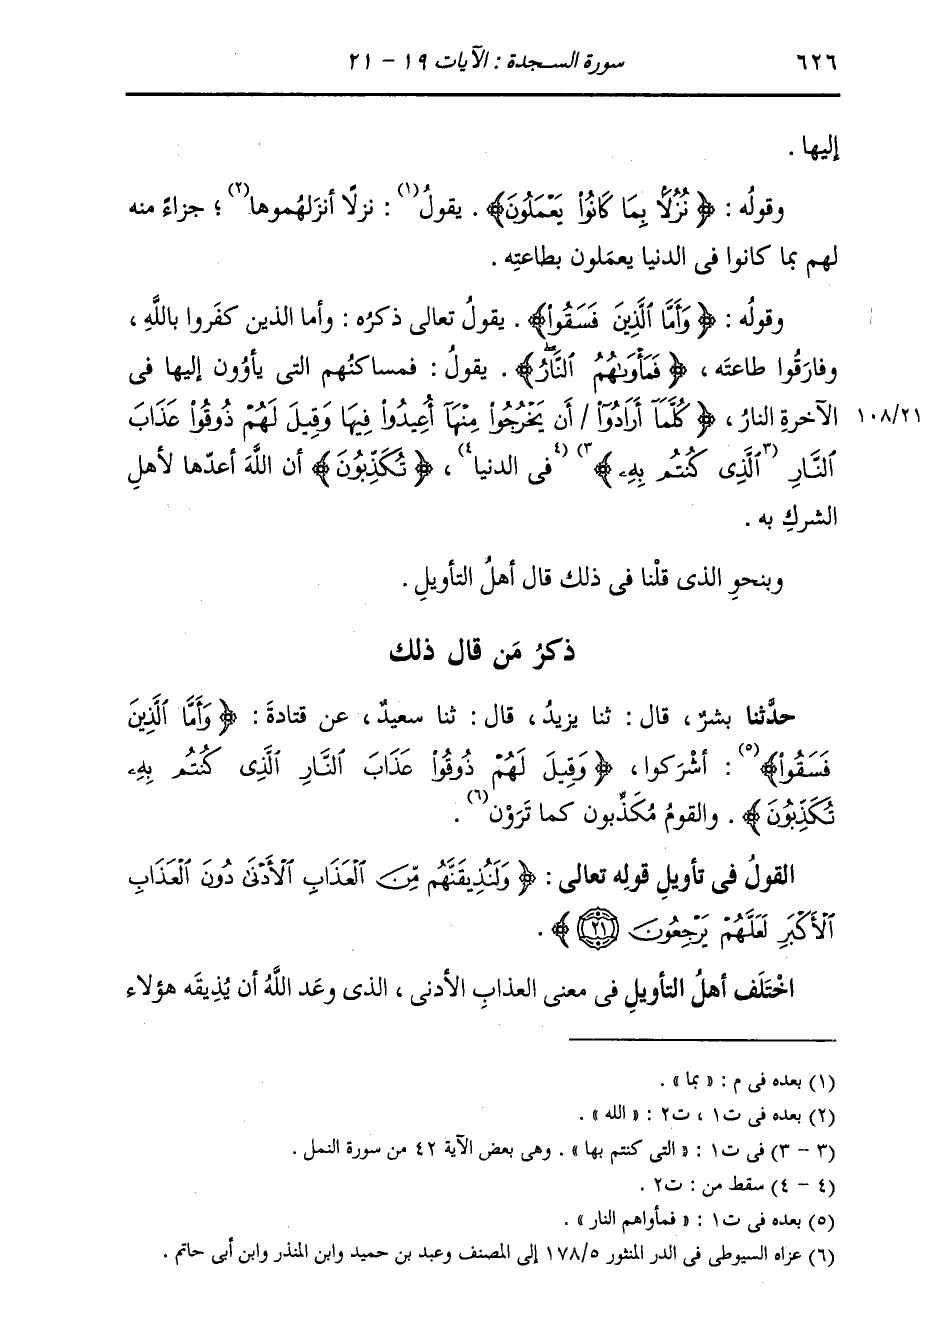 ٦٢٦ سورة السجدة : الآيات ١٩ - ٢١
إليها .
وقولُه : ﴿ نُزُلًا بِمَا كَانُوا۟ يَعْمَلُونَ﴾ . يقولُ(١) : نزلًا أنزلهُموها(٢) ؛ جزاءً منه
لهم بما كانوا فى الدنيا يعمَلون بطاعتِه .
وقولُه : ﴿ وَأَمَّا ٱلَّذِينَ فَسَقُوا۟﴾ . يقولُ تعالى ذكرُه : وأما الذين كفَروا باللَّهِ ،
وفارَقُوا طاعتَه ، ﴿ فَمَأْوَىٰهُمُ ٱلنَّارُ ۖ﴾ . يقولُ : فمساكنُهم التى يأوُون إليها فى
١٠٨/٢١ الآخرةِ النارُ ، ﴿ كُلَّمَآ أَرَادُوٓا۟ / أَن يَخْرُجُوا۟ مِنْهَآ أُعِيدُوا۟ فِيهَا وَقِيلَ لَهُمْ ذُوقُوا۟ عَذَابَ
ٱلنَّارِ (٣ ٱلَّذِى كُنتُم بِهِۦ ﴾ ٣) (٤ فى الدنيا ٤) ، ﴿ تُكَذِّبُونَ ﴾ أن اللَّهَ أعدّها لأهلِ
الشركِ به .
وبنحوِ الذى قلْنا فى ذلك قال أهلُ التأويلِ .
ذكرُ مَن قال ذلك
حدَّثنا بشرٌ ، قال : ثنا يزيدُ ، قال : ثنا سعيدٌ ، عن قتادةَ : ﴿ وَأَمَّا ٱلَّذِينَ
فَسَقُوا۟﴾(٥) : أشْرَكوا ، ﴿ وَقِيلَ لَهُمْ ذُوقُوا۟ عَذَابَ ٱلنَّارِ ٱلَّذِى كُنتُم بِهِۦ
تُكَذِّبُونَ ﴾ . والقومُ مُكَذِّبون كما تَرَوْن(٦) .
القولُ فى تأويلِ قولِه تعالى : ﴿ وَلَنُذِيقَنَّهُم مِّنَ ٱلْعَذَابِ ٱلْأَدْنَىٰ دُونَ ٱلْعَذَابِ
ٱلْأَكْبَرِ لَعَلَّهُمْ يَرْجِعُونَ ٢١ ﴾ .
اخْتَلَف أهلُ التأويلِ فى معنى العذابِ الأدنى ، الذى وعَد اللَّهُ أن يُذِيقَه هؤلاء
(١) بعده فى م : « بما » .
(٢) بعده فى ت١ ، ت٢ : « الله » .
(٣ - ٣) فى ت١ : « التى كنتم بها » . وهى بعض الآية ٤٢ من سورة النمل .
(٤ - ٤) سقط من : ت٢ .
(٥) بعده فى ت١ : « فمأواهم النار » .
(٦) عزاه السيوطى فى الدر المنثور ١٧٨/٥ إلى المصنف وعبد بن حميد وابن المنذر وابن أبى حاتم .